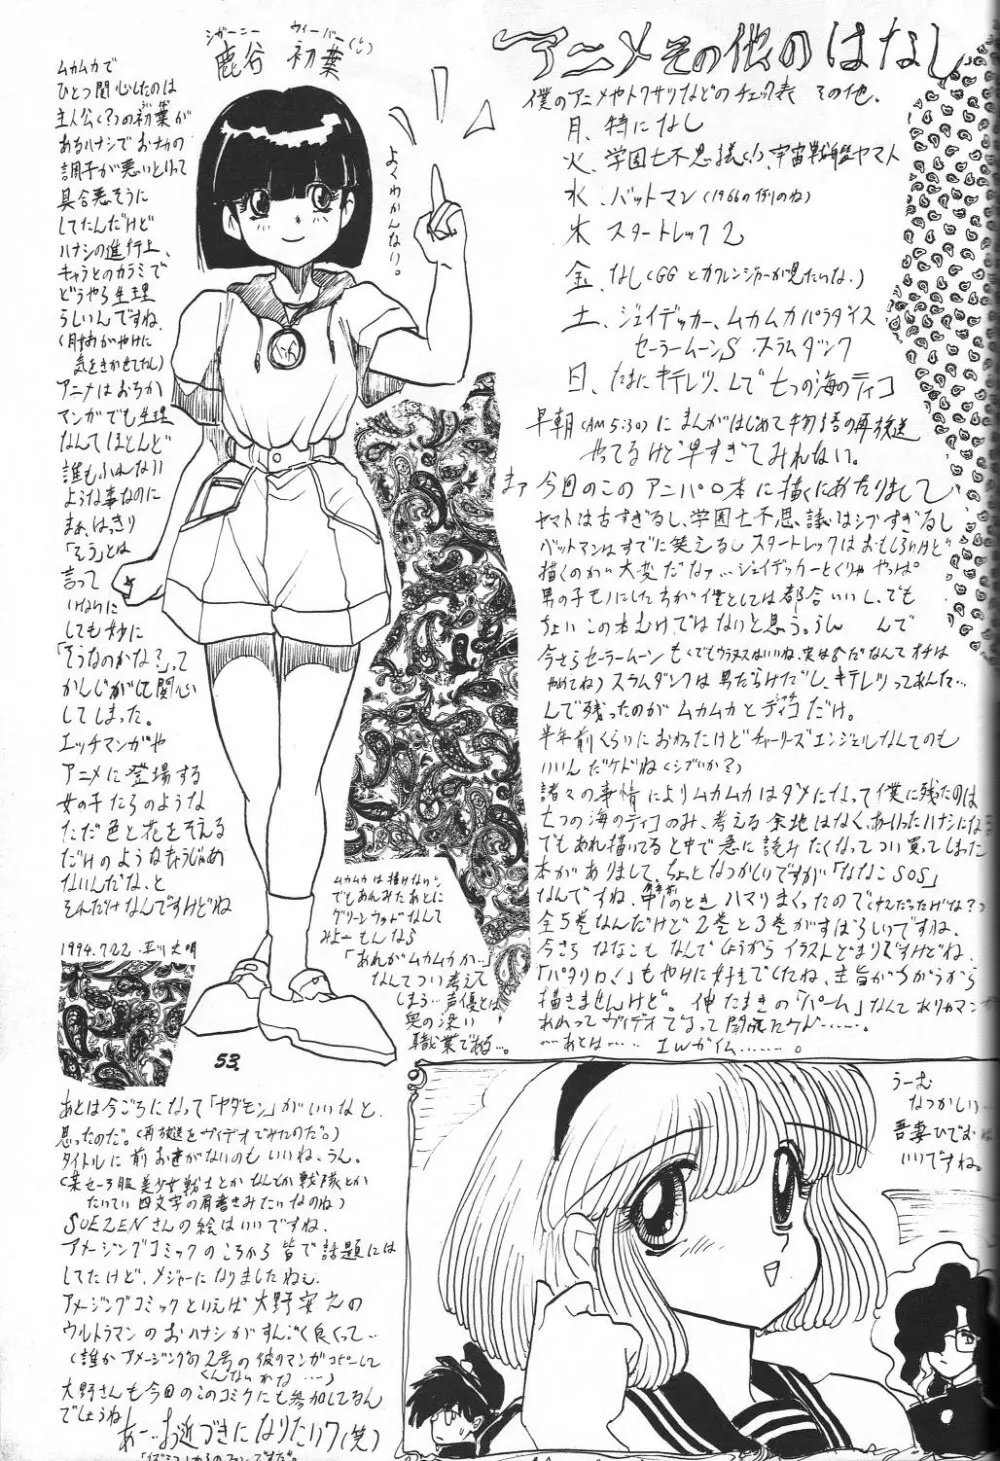 アニメその他のはなし
僕のアニメやトクサツなどのチェック表 その他、
月、特になし
火、学園七不思議(!)、宇宙戦艦ヤマト
水、バットマン(1966の何りのね)
木 スタートレック2
金、なし(GGとカクレンジャーが見たいな。)
土、ジェイデッカー、ムカムカパラダイス
セーラームーンS スラムダンク
日、たまにキテレツ、んで七つの海のティコ
早朝(AM5:30)にまんがはじめて物語の再放送
やってるけど早すぎてみれない。
まァ今回のこのアニパロ本に描くにあたりまして
ヤマトは古すぎるし、学園七不思議はシブすぎるし
バットマンはすでに笑えるしスタートレックはおもしろいけど
描くのが大変だなァ…ジェイデッカーとくりゃやっぱ
男の子モノにしたちが僕としては都合いいし、でも
ちょいこの本むけではないと思う。うん んで
今さらセーラームーンもくでもウラヌスはいいね、実は女だなんてオチは
やめてね)スラムダンクは男だらけだし、キテレツってあんた…
んで残ったのがムカムカとティコだけ。
半年前くらいにおわったけどチャーリーズエンジェルなんてのも
いいんだケドね(シブいか?)
諸々の事情によりムカムカはダメになって僕に残ったのは
七つの海のティコのみ、考える余地はなく、あーいったハナシにな
でもあれ描いてると中で急に読みたくなってつい買ってしまった
本がありまして、ちょっとなつかしいですが「ななこSOS」
なんですね、中1のときハマりまくったので
全5巻なんだけど2巻と3巻がすばらしいですね、
今さらななこもなんでしょうからイラストどまりですけどね、
「パタリロ!」もやけに好きでしたね、主旨がちがうから
描きませんけど。伸たまきの「パーム」なんて
おわってヴィデオでなって
…あとは……
シガーニー ウィーバー
鹿谷 初葉
よくわかんない。
ムカムカで
ひとつ関心したのは
主人公(?)の初葉が
あるハナシでおナカの
調子が悪いといって
具合悪そうに
してたんだけど
ハナシの進行上、
キャラとのカラミで
どうやら生理
らしいんですね、
気をきかせてたし)
アニメはおろか
マンガでも生理
なんてほとんど
誰もふれない
ような事なのに
まぁ、はっきり
「そう」とは
言って
いないに
しても妙に
「そうなのかな?」って
かんじがして関心
してしまった。
エッチマンガや
アニメに登場する
女の子たちのような
ただ色と花をそえる
だけのようなもんじゃあ
ないんだな、と
それだけなんですけどね
1994.7.22.
53.
ムカムカは描けないっ
でもあんみたあとに
グリーンウッドなんて
みよーもんなら
「あれがムカムカか…」
なんてつい考えて
しまう…声優とは
奥の深い
職業である…。
あとは今ごろになって「ヤダモン」がいいなと
思ったのだ。(再放送をヴィデオでみたのだ。)
タイトルに前おきがないのもいいね、うん。
(某セーラー服美少女戦士とかなんとか戦隊とか
たいてい四文字の肩書きみたいなのね)
SUEZENさんの絵はいいですね、
アメージングコミックのころから皆で話題には
してたけど、メジャーになりましたねぇ
アメージングコミックといえば大野安之の
ウルトラマンのおハナシがすんごく良くって…
(誰かアメージングの2号の彼のマンガコピーして
くんないかな…)
大野さんも今回のこのコミケにも参加してるん
でしょうね
あー…お近づきになりたい?(笑)
うーむ
なつかしい…
吾妻ひでおは
いいですね。